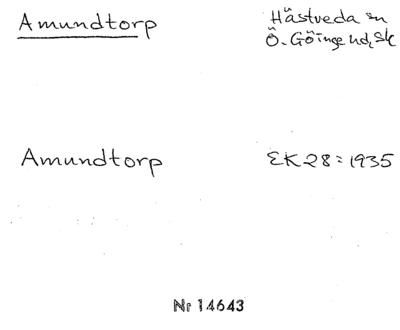 Amundtorp
Hästveda sn
Ö. Göinge hd, Sk
Amundtorp
EK 28 : 1935
Nr 14643